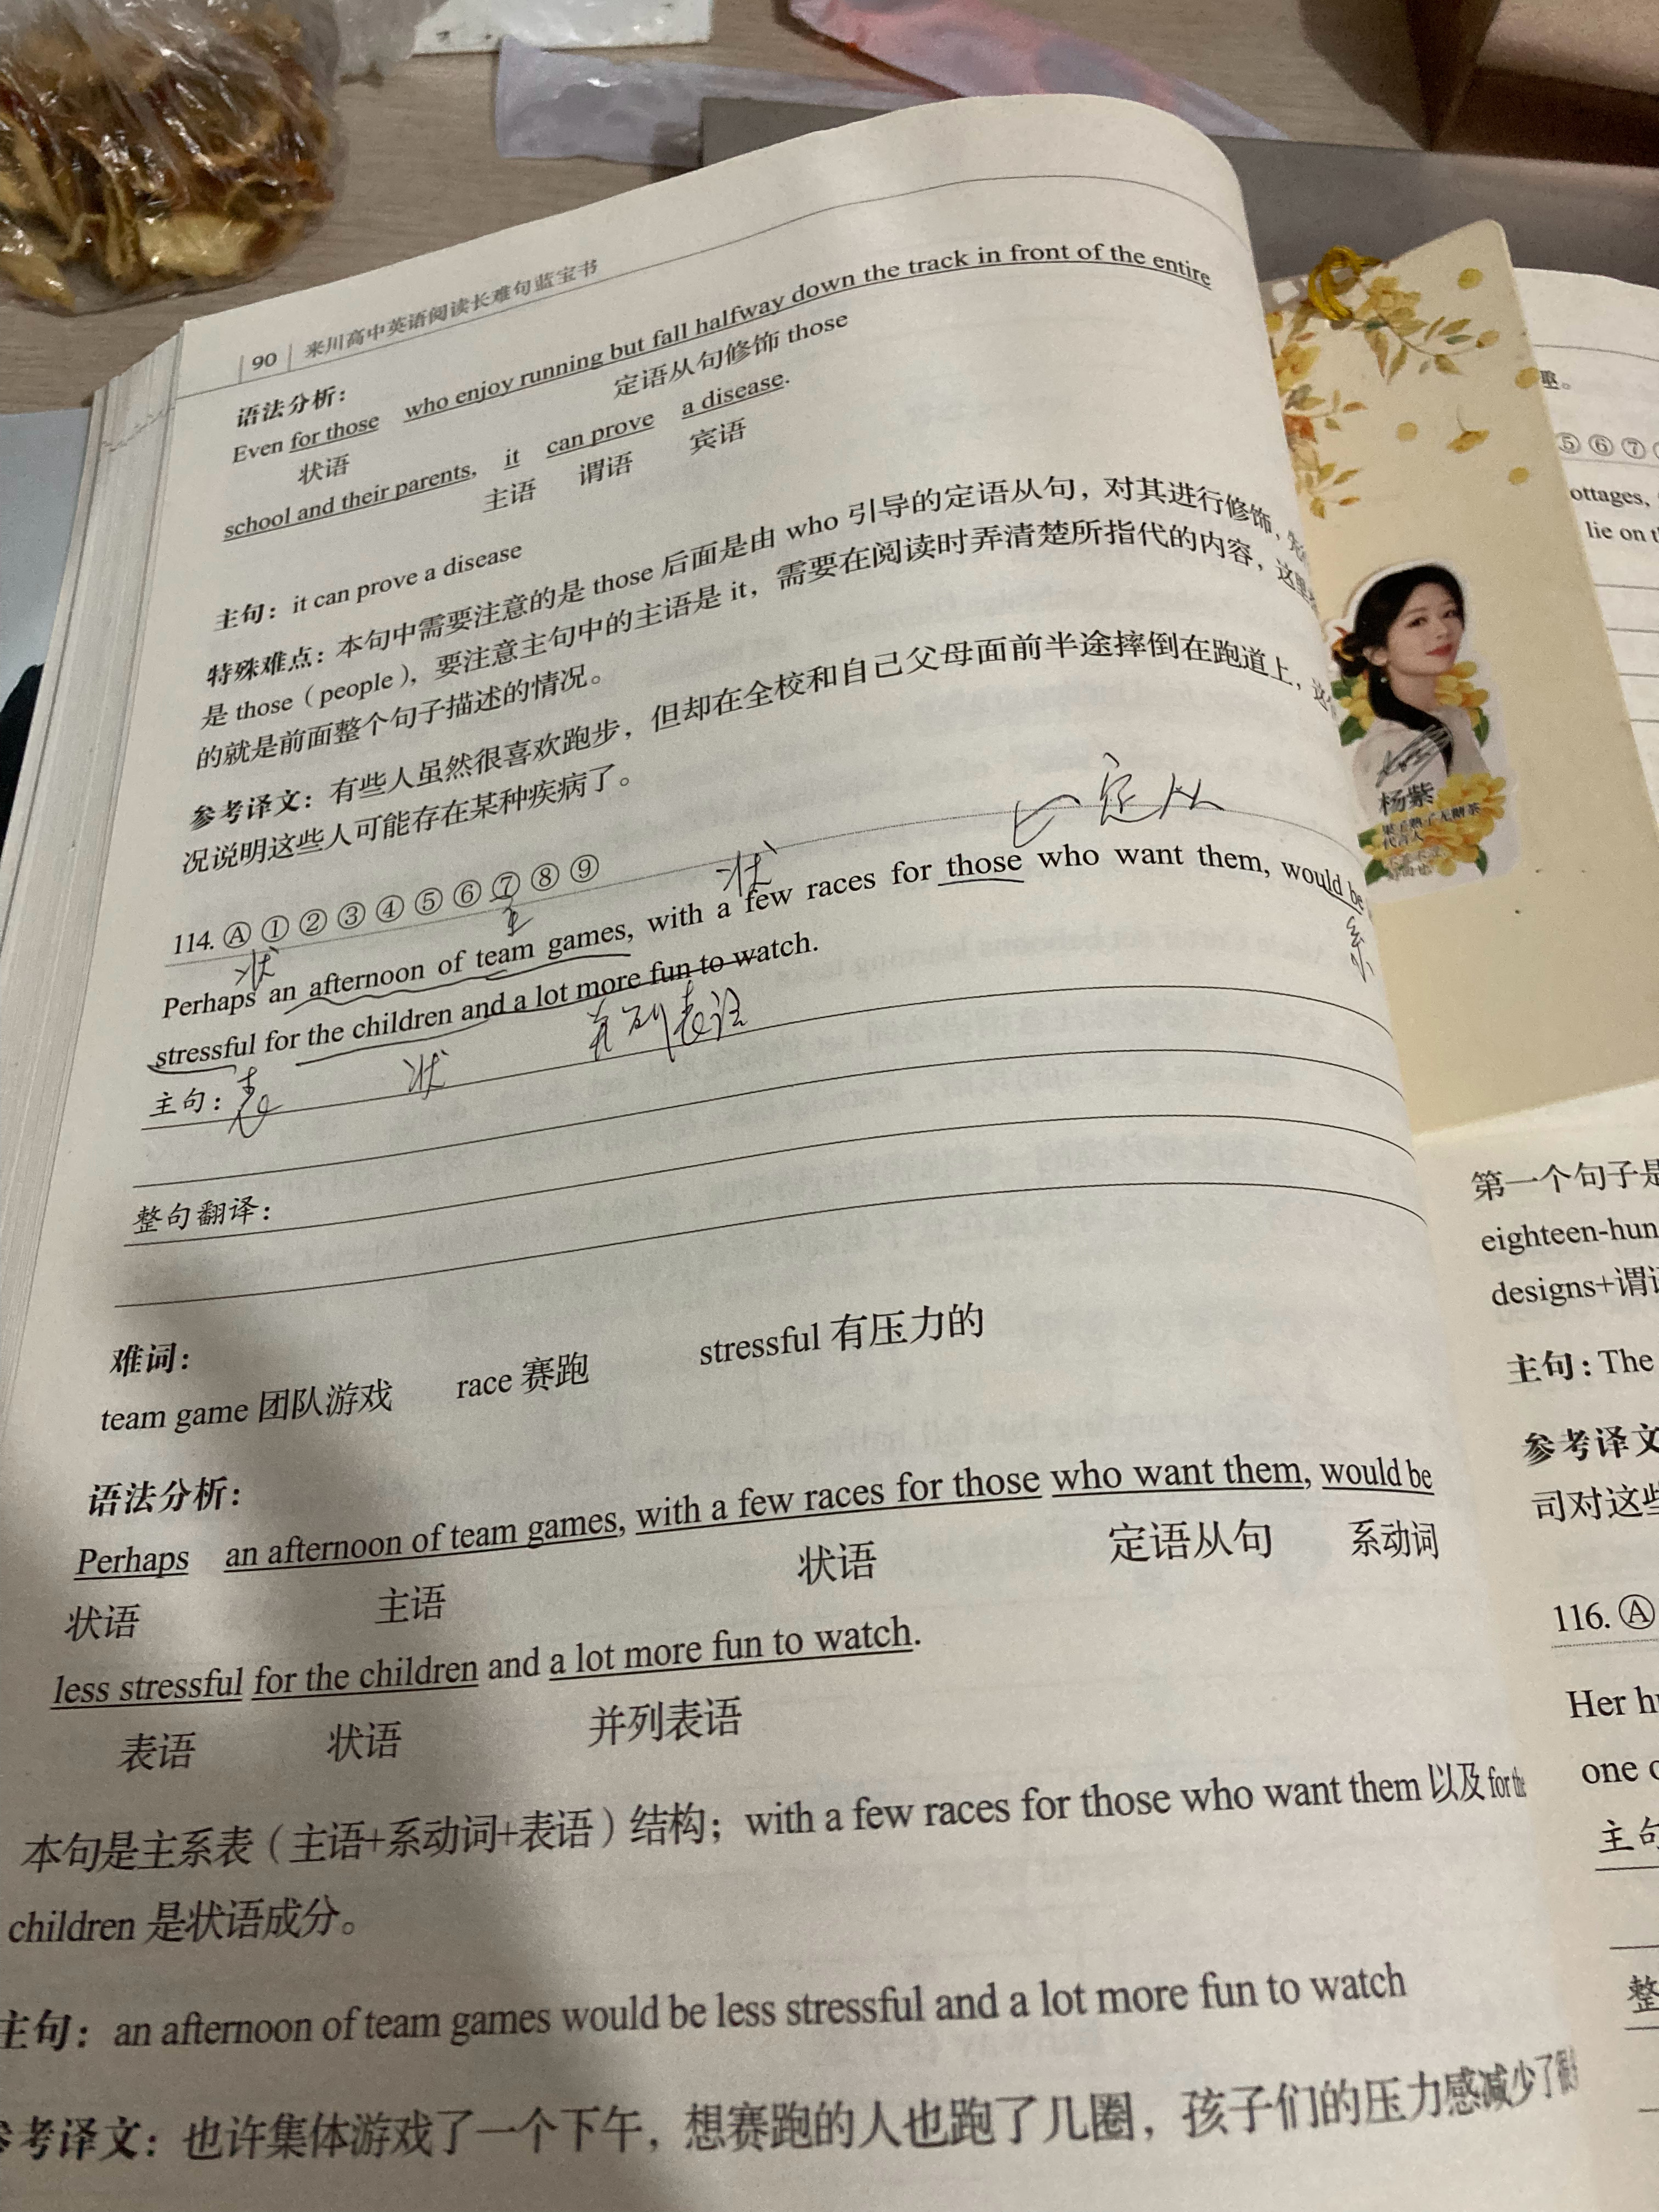 90 来川高中英语阅读长难句蓝宝书
语法分析：
Even for those who enjoy running but fall halfway down the track in front of the entire
状语 定语从句修饰 those
school and their parents, it can prove a disease.
主语 谓语 宾语
主句：it can prove a disease
特殊难点：本句中需要注意的是 those 后面是由 who 引导的定语从句，对其进行修饰，
是 those（people），要注意主句中的主语是 it，需要在阅读时弄清楚所指代的内容，这里
的就是前面整个句子描述的情况。
参考译文：有些人虽然很喜欢跑步，但却在全校和自己父母面前半途摔倒在跑道上，
况说明这些人可能存在某种疾病了。
定从
114. Ⓐ ① ② ③ ④ ⑤ ⑥ ⑦ ⑧ ⑨
状 主 状
Perhaps an afternoon of team games, with a few races for those who want them, would be
系
stressful for the children and a lot more fun to watch.
主句：表 状 并列表语
整句翻译：
难词：
team game 团队游戏 race 赛跑 stressful 有压力的
语法分析：
Perhaps an afternoon of team games, with a few races for those who want them, would be
状语 主语 状语 定语从句 系动词
less stressful for the children and a lot more fun to watch.
表语 状语 并列表语
本句是主系表（主语+系动词+表语）结构；with a few races for those who want them 以及 for the
children 是状语成分。
主句：an afternoon of team games would be less stressful and a lot more fun to watch
参考译文：也许集体游戏了一个下午，想赛跑的人也跑了几圈，孩子们的压力感减少了很多
杨紫
代言人
趣。
⑤ ⑥ ⑦
ottages,
lie on
第一个句子是
eighteen-hun
designs+谓语
主句：The
参考译文
司对这些
116. Ⓐ
Her
one
主句
整